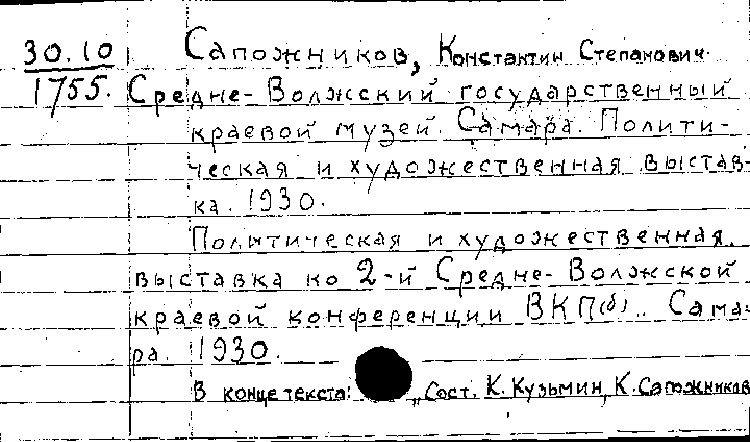 30.10 Сапожников, Константин Степанович.
1755. Средне-Волжский государственный
краевой музей. Самара. Полити-
ческая и художественная выстав-
ка. 1930.
Политическая и художественная
выставка ко 2-й Средне-Волжской
краевой конференции ВКП(б). Сама-
ра. 1930.
В конце текста: Сост. К. Кузьмин, К. Сапожников